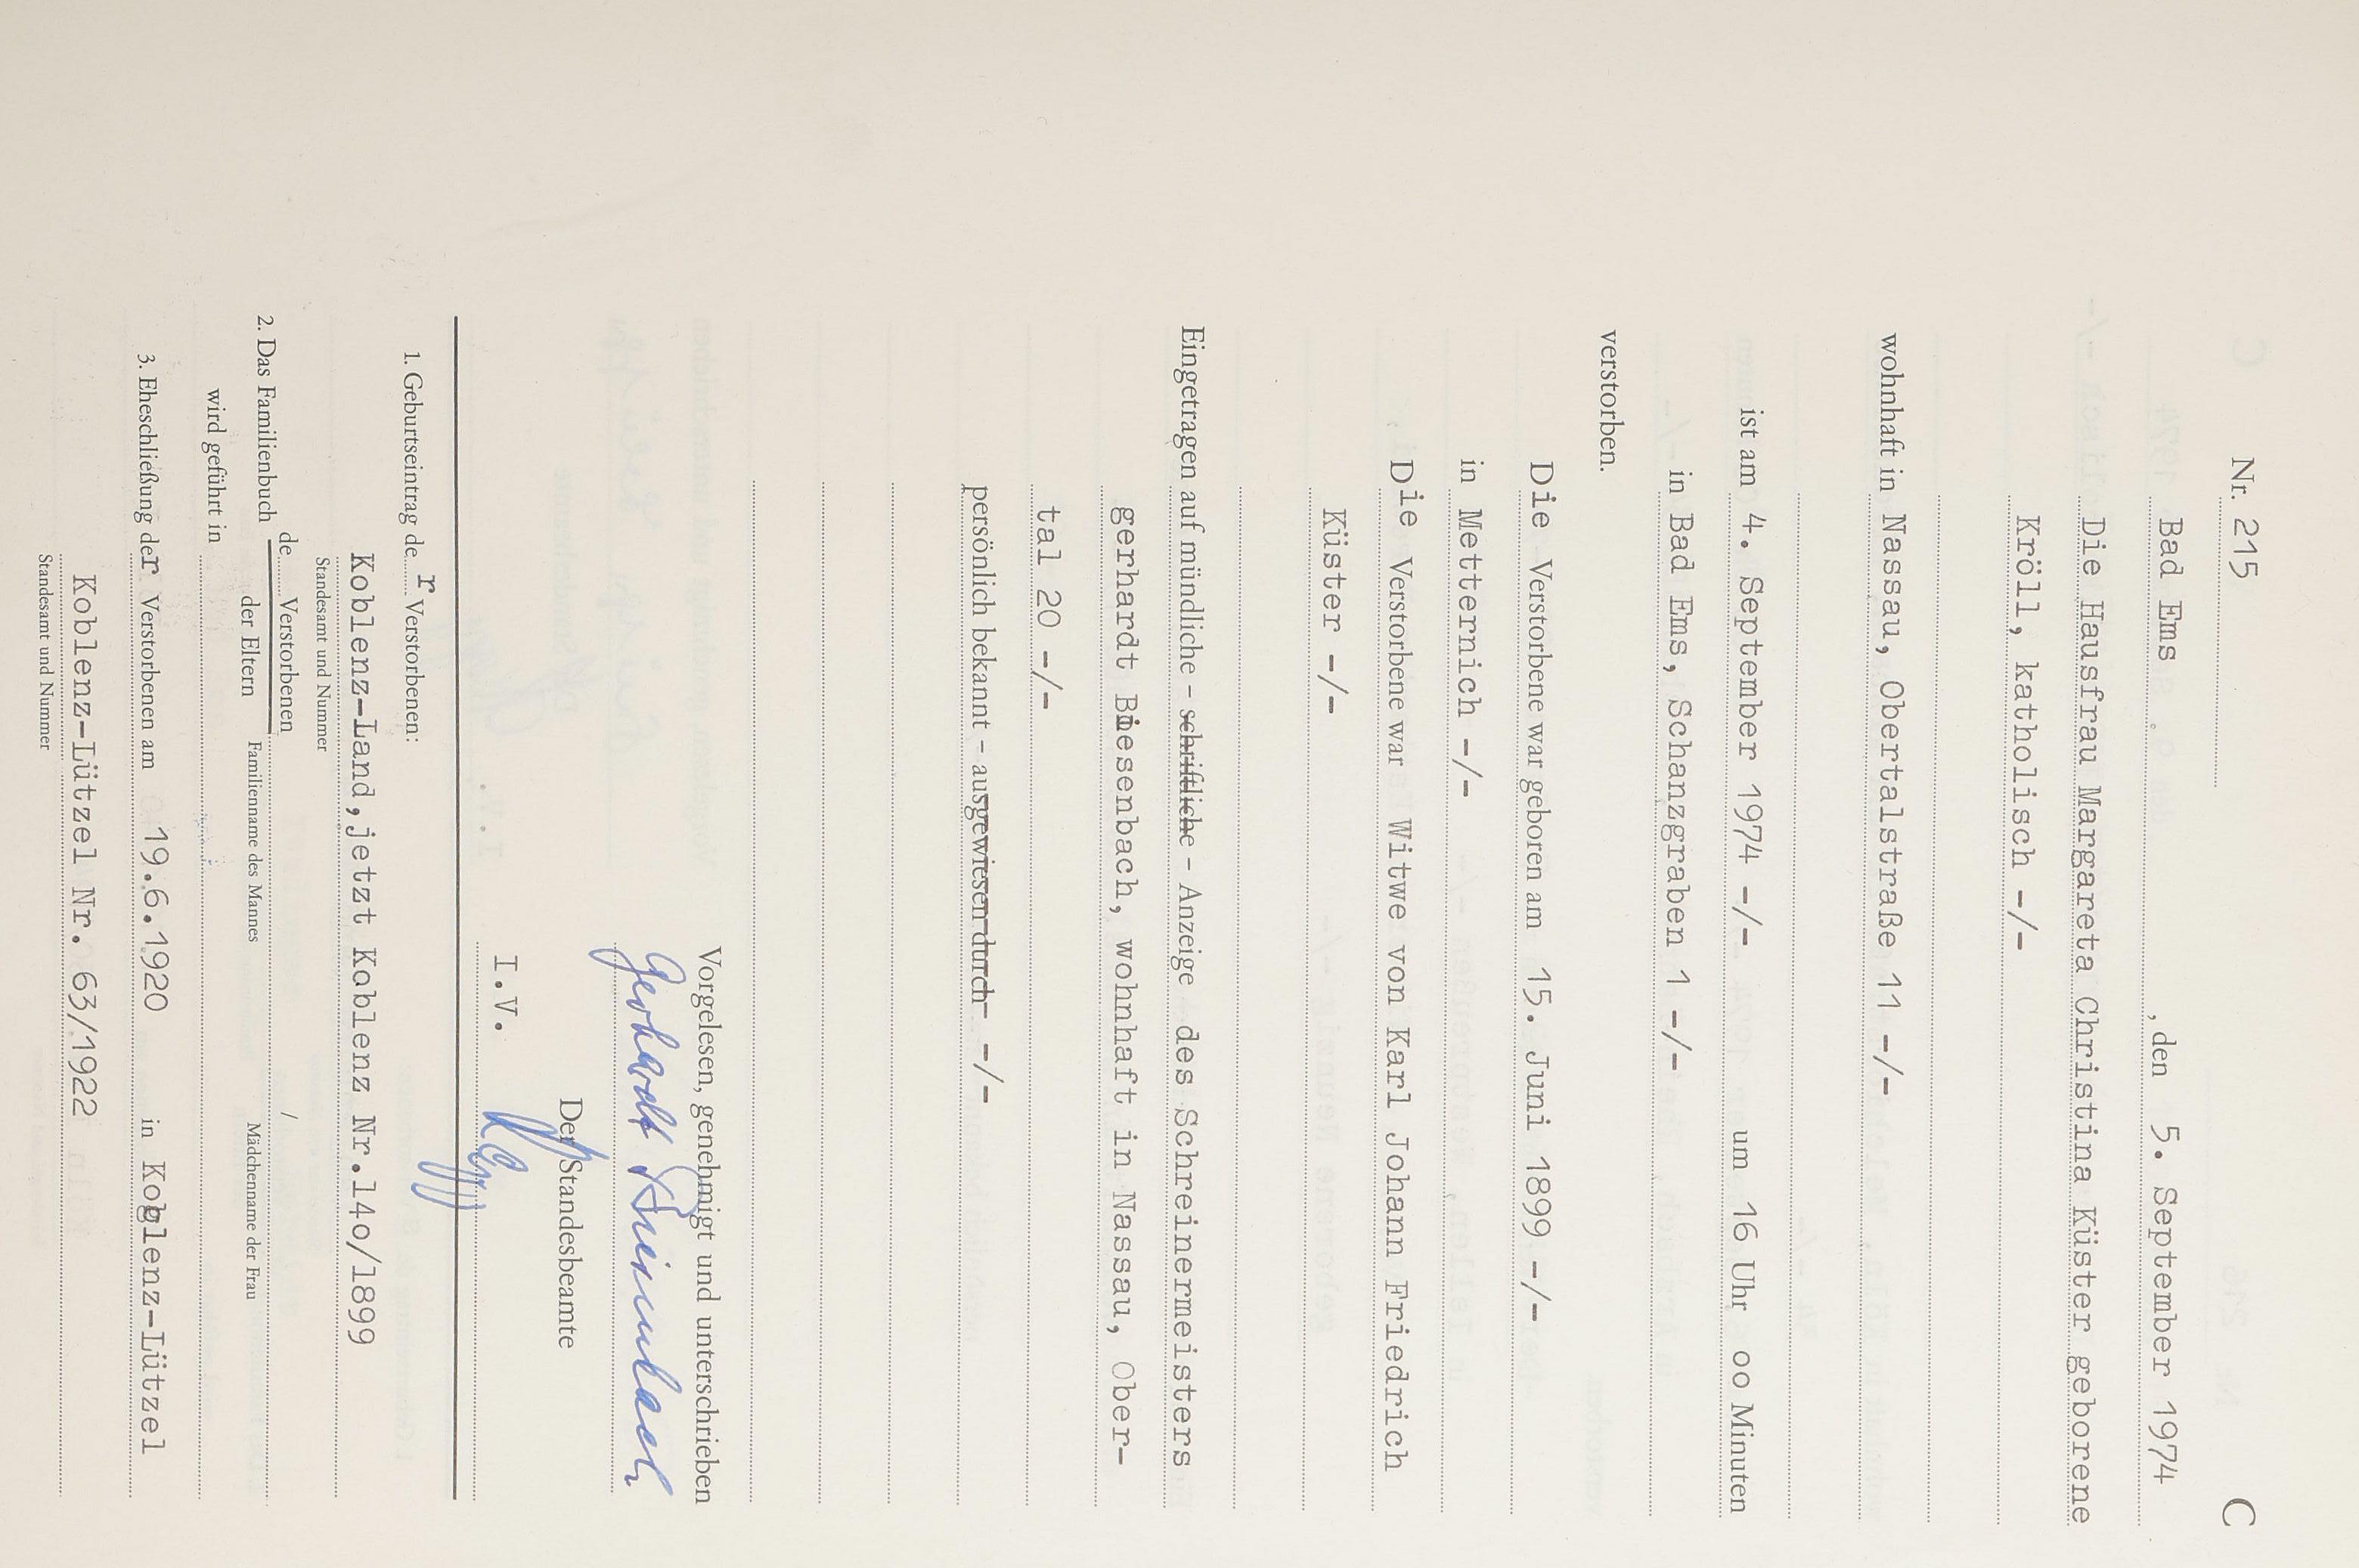 Nr. 215 C
Bad Ems , den 5. September 1974
Die Hausfrau Margareta Christina Küster geborene
Kröll, katholisch -/-
wohnhaft in Nassau, Obertalstraße 11 -/-
ist am 4. September 1974 -/- um 16 Uhr oo Minuten
in Bad Ems, Schanzgraben 1 -/-
verstorben.
Die Verstorbene war geboren am 15. Juni 1899 -/-
in Metternich -/-
Die Verstorbene war Witwe von Karl Johann Friedrich
Küster -/-
Eingetragen auf mündliche - schriftliche - Anzeige des Schreinermeisters
gerhardt Biesenbach, wohnhaft in Nassau, Ober-
tal 20 -/-
persönlich bekannt - ausgewiesen durch -/-
Vorgelesen, genehmigt und unterschrieben
Gerhardt Biesenbach
Der Standesbeamte
I.V.
1. Geburtseintrag de r Verstorbenen:
Koblenz-Land,jetzt Koblenz Nr.14o/1899
Standesamt und Nummer
2. Das Familienbuch de Verstorbenen /
der Eltern Familienname des Mannes Mädchenname der Frau
wird geführt in
3. Eheschließung der Verstorbenen am 19.6.1920 in Koblenz-Lützel
Koblenz-Lützel Nr. 63/1922
Standesamt und Nummer